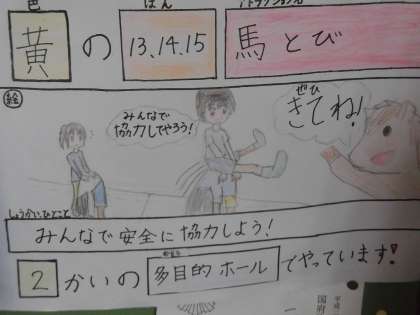 色 ばん
黄 の 13.14.15 馬とび
絵
みんなで
協力してやろう!
ぜひ
きてね!
しょうかいひとこと
みんなで安全に協力しよう!
2 かいの 多目的 ホール でやっています!